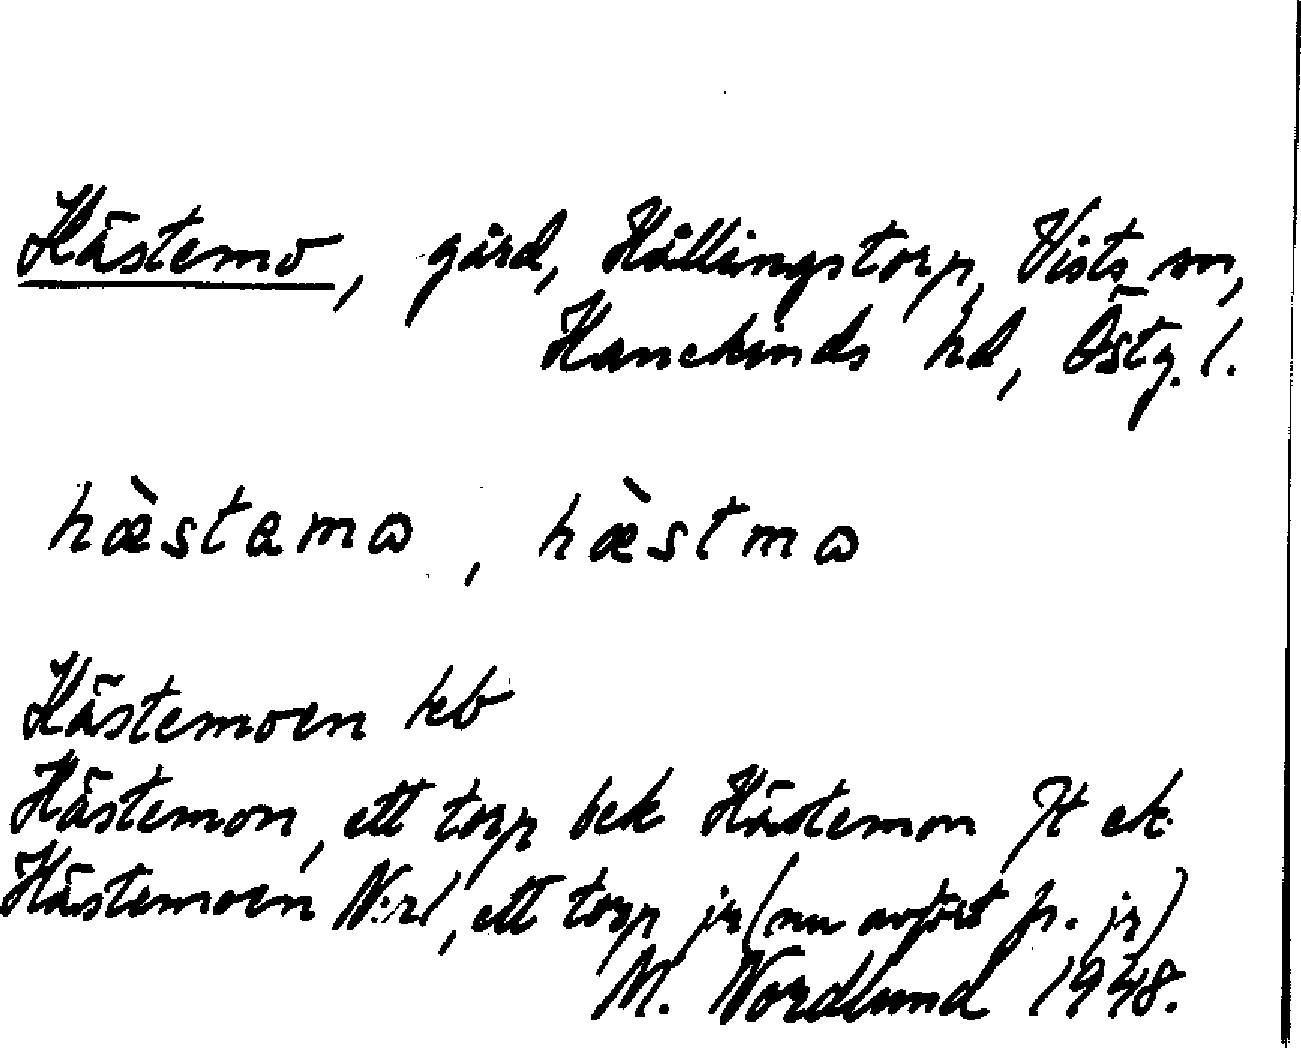 Hästemo, gård, Hållingstorp, Vists sn,
Hanekinds hd, Östg. l.
hæ̀stamɷ, hæ̀stmɷ
Hästemoen hb
Hästemon, ett torp bek Hästemon Jt ek.
Hästemoen N:r1, ett torp jr (nu avfört fr. jr)
M. Nordlund 1948.